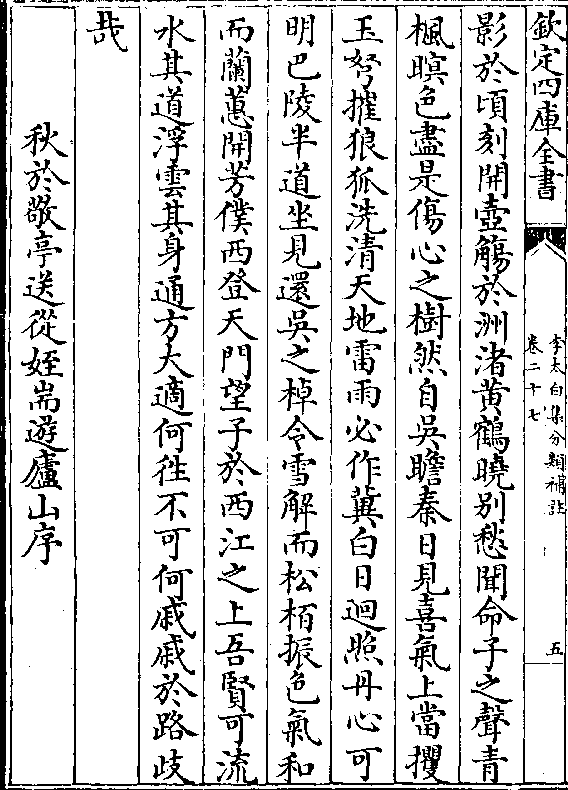 欽定四庫全書
李太白集分類補註
卷二十七
五
影於頃刻開壺觴於洲渚黄鶴曉别愁聞命子之聲青
楓暝色盡是傷心之樹然自吳瞻秦日見喜氣上當攫
玉弩摧狼狐洗清天地雷雨必作冀白日迴照丹心可
明巴陵半道坐見還吳之棹令雪解而松栢振色氣和
而蘭蕙開芳僕西登天門望子於西江之上吾賢可流
水其道浮雲其身通方大適何徃不可何戚戚於路歧
㢤
秋於敬亭送從姪耑遊廬山序